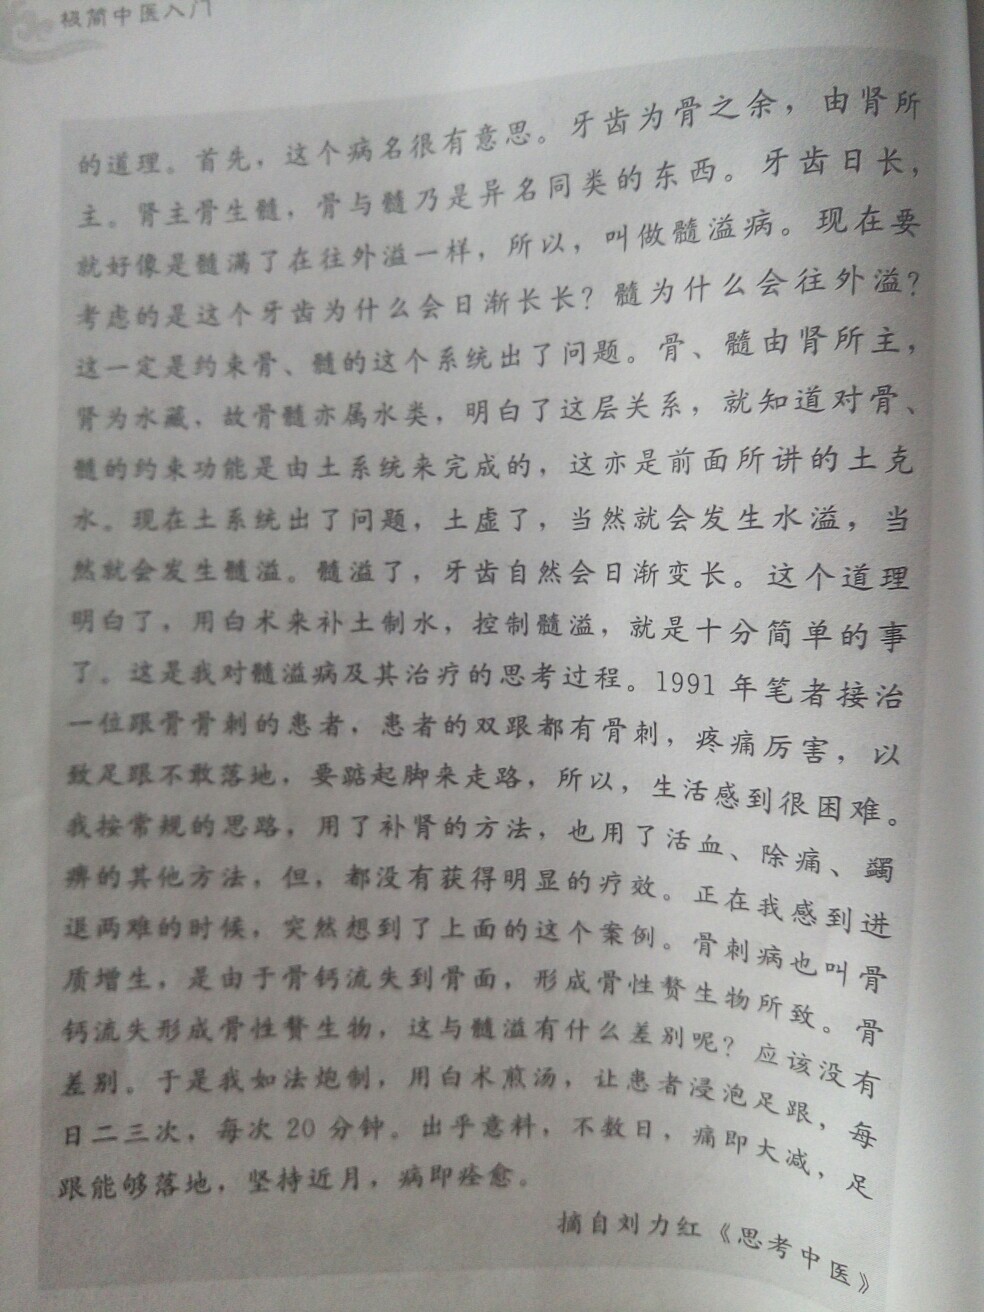 极简中医入门
的道理。首先，这个病名很有意思。牙齿为骨之余，由肾所
主。肾主骨生髓，骨与髓乃是异名同类的东西。牙齿日长，
就好像是髓满了在往外溢一样，所以，叫做髓溢病。现在要
考虑的是这个牙齿为什么会日渐长长？髓为什么会往外溢？
这一定是约束骨、髓的这个系统出了问题。骨、髓由肾所主，
肾为水藏，故骨髓亦属水类，明白了这层关系，就知道对骨、
髓的约束功能是由土系统来完成的，这亦是前面所讲的土克
水。现在土系统出了问题，土虚了，当然就会发生水溢，当
然就会发生髓溢。髓溢了，牙齿自然会日渐变长。这个道理
明白了，用白术来补土制水，控制髓溢，就是十分简单的事
了。这是我对髓溢病及其治疗的思考过程。1991年笔者接治
一位跟骨骨刺的患者，患者的双跟都有骨刺，疼痛厉害，以
致足跟不敢落地，要踮起脚来走路，所以，生活感到很困难。
我按常规的思路，用了补肾的方法，也用了活血、除痛、蠲
痹的其他方法，但，都没有获得明显的疗效。正在我感到进
退两难的时候，突然想到了上面的这个案例。骨刺病也叫骨
质增生，是由于骨钙流失到骨面，形成骨性赘生物所致。骨
钙流失形成骨性赘生物，这与髓溢有什么差别呢？应该没有
差别。于是我如法炮制，用白术煎汤，让患者浸泡足跟，每
日二三次，每次20分钟。出乎意料，不数日，痛即大减，足
跟能够落地，坚持近月，病即痊愈。
摘自刘力红《思考中医》